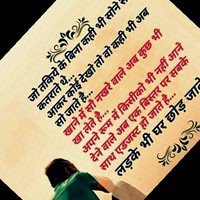 जो तकिये के बिना कही भी सोने से
कतराते थे...
आकर कोई देखो तो वो कही भी अब
सो जाते है...
खाने में सौ नखरे वाले अब कुछ भी
खा लेते है...
अपने रूम में किसीको भी नहीं आने
देने वाले अब एक बिस्तर पर सबके
साथ एडजस्ट हो जाते है...
लड़के भी घर छोड़ जाते